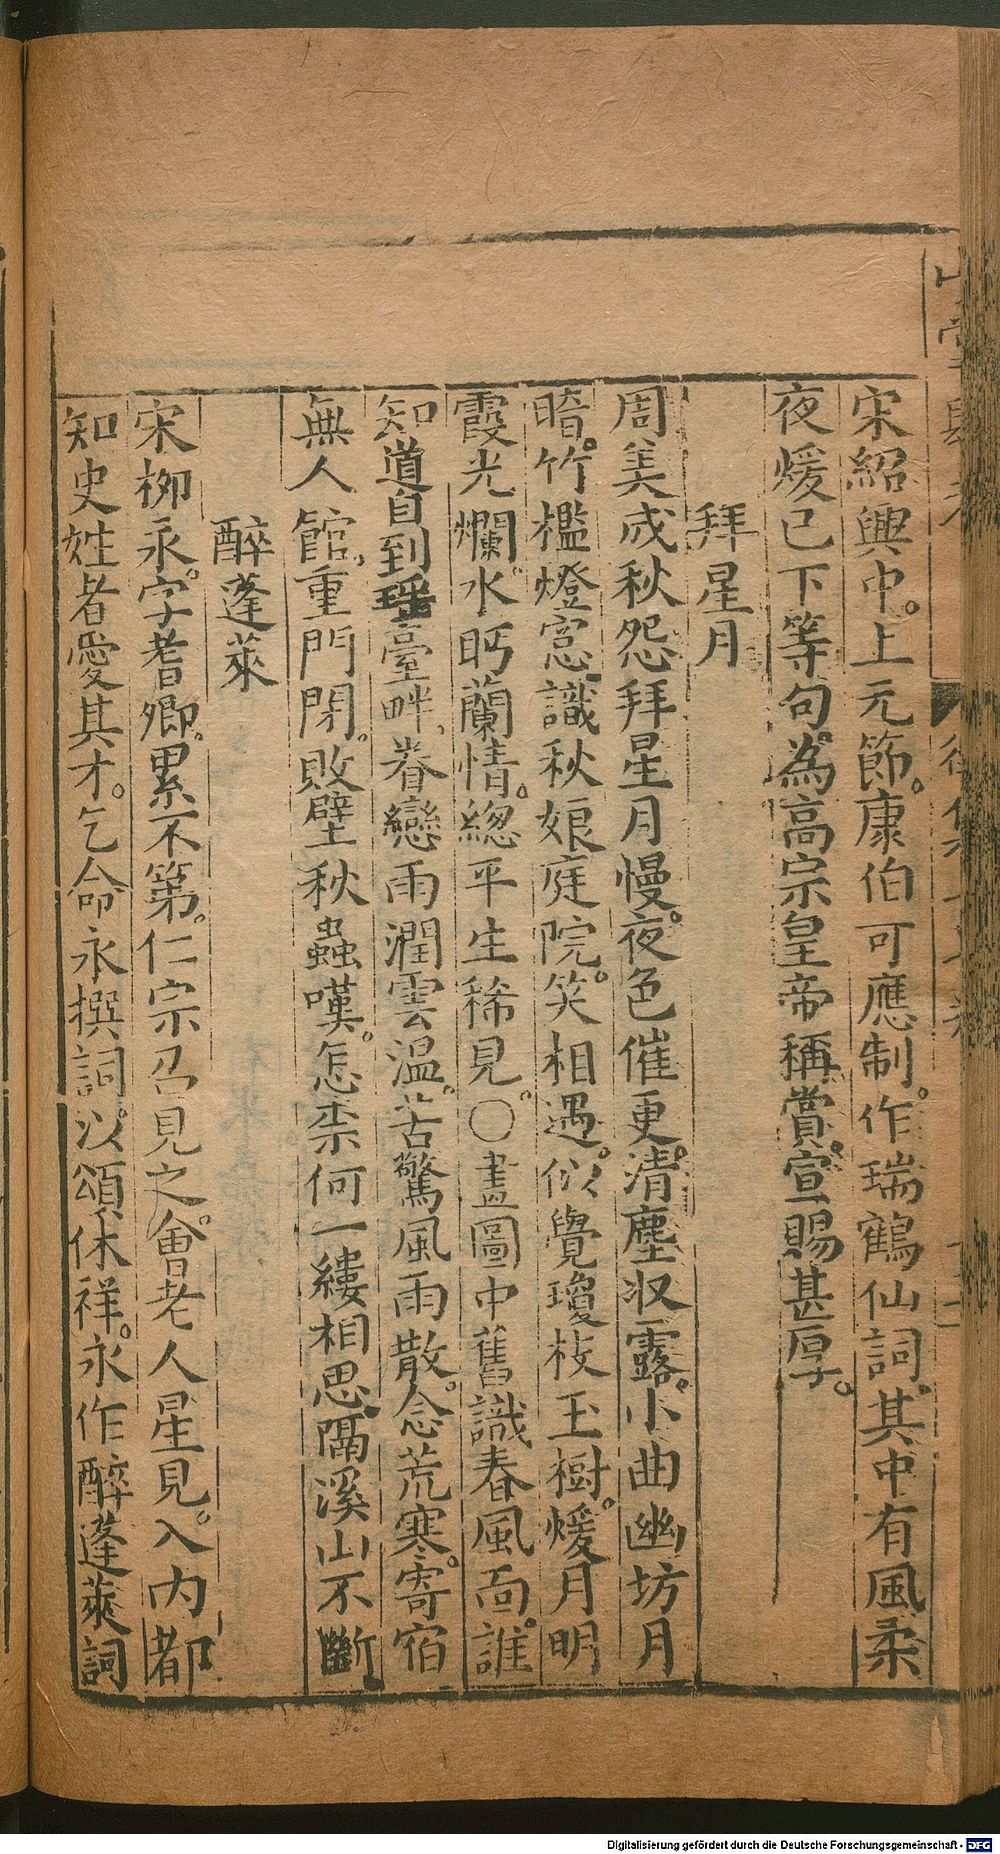 宋紹興中。上元節。康伯可應制。作瑞鶴仙詞。其中有風柔
夜煖已下等句。為高宗皇帝稱賞。宣賜甚厚。
拜星月
周美成秋怨拜星月慢。夜色催更。清塵収露。小曲幽坊月
暗。竹檻燈窓。識秋娘庭院。笑相遇。似覺瓊枝玉樹。煖月明
霞光爛。水眄蘭情。緫平生稀見。○畫圖中舊識春風面。誰
知道自到瑶臺畔。眷戀雨潤雲温。苦驚風雨散。念荒寒。寄宿
無人館。重門閉。敗壁秋蟲嘆。怎柰何一縷相思。隔溪山不斷
醉蓬萊
宋栁永。字耆卿。累不第。仁宗召見之。會老人星見。入内都
知史姓者愛其才。乞命永撰詞。以頌休祥。永作醉蓬萊詞
Digitalisierung gefördert durch die Deutsche Forschungsgemeinschaft - DFG